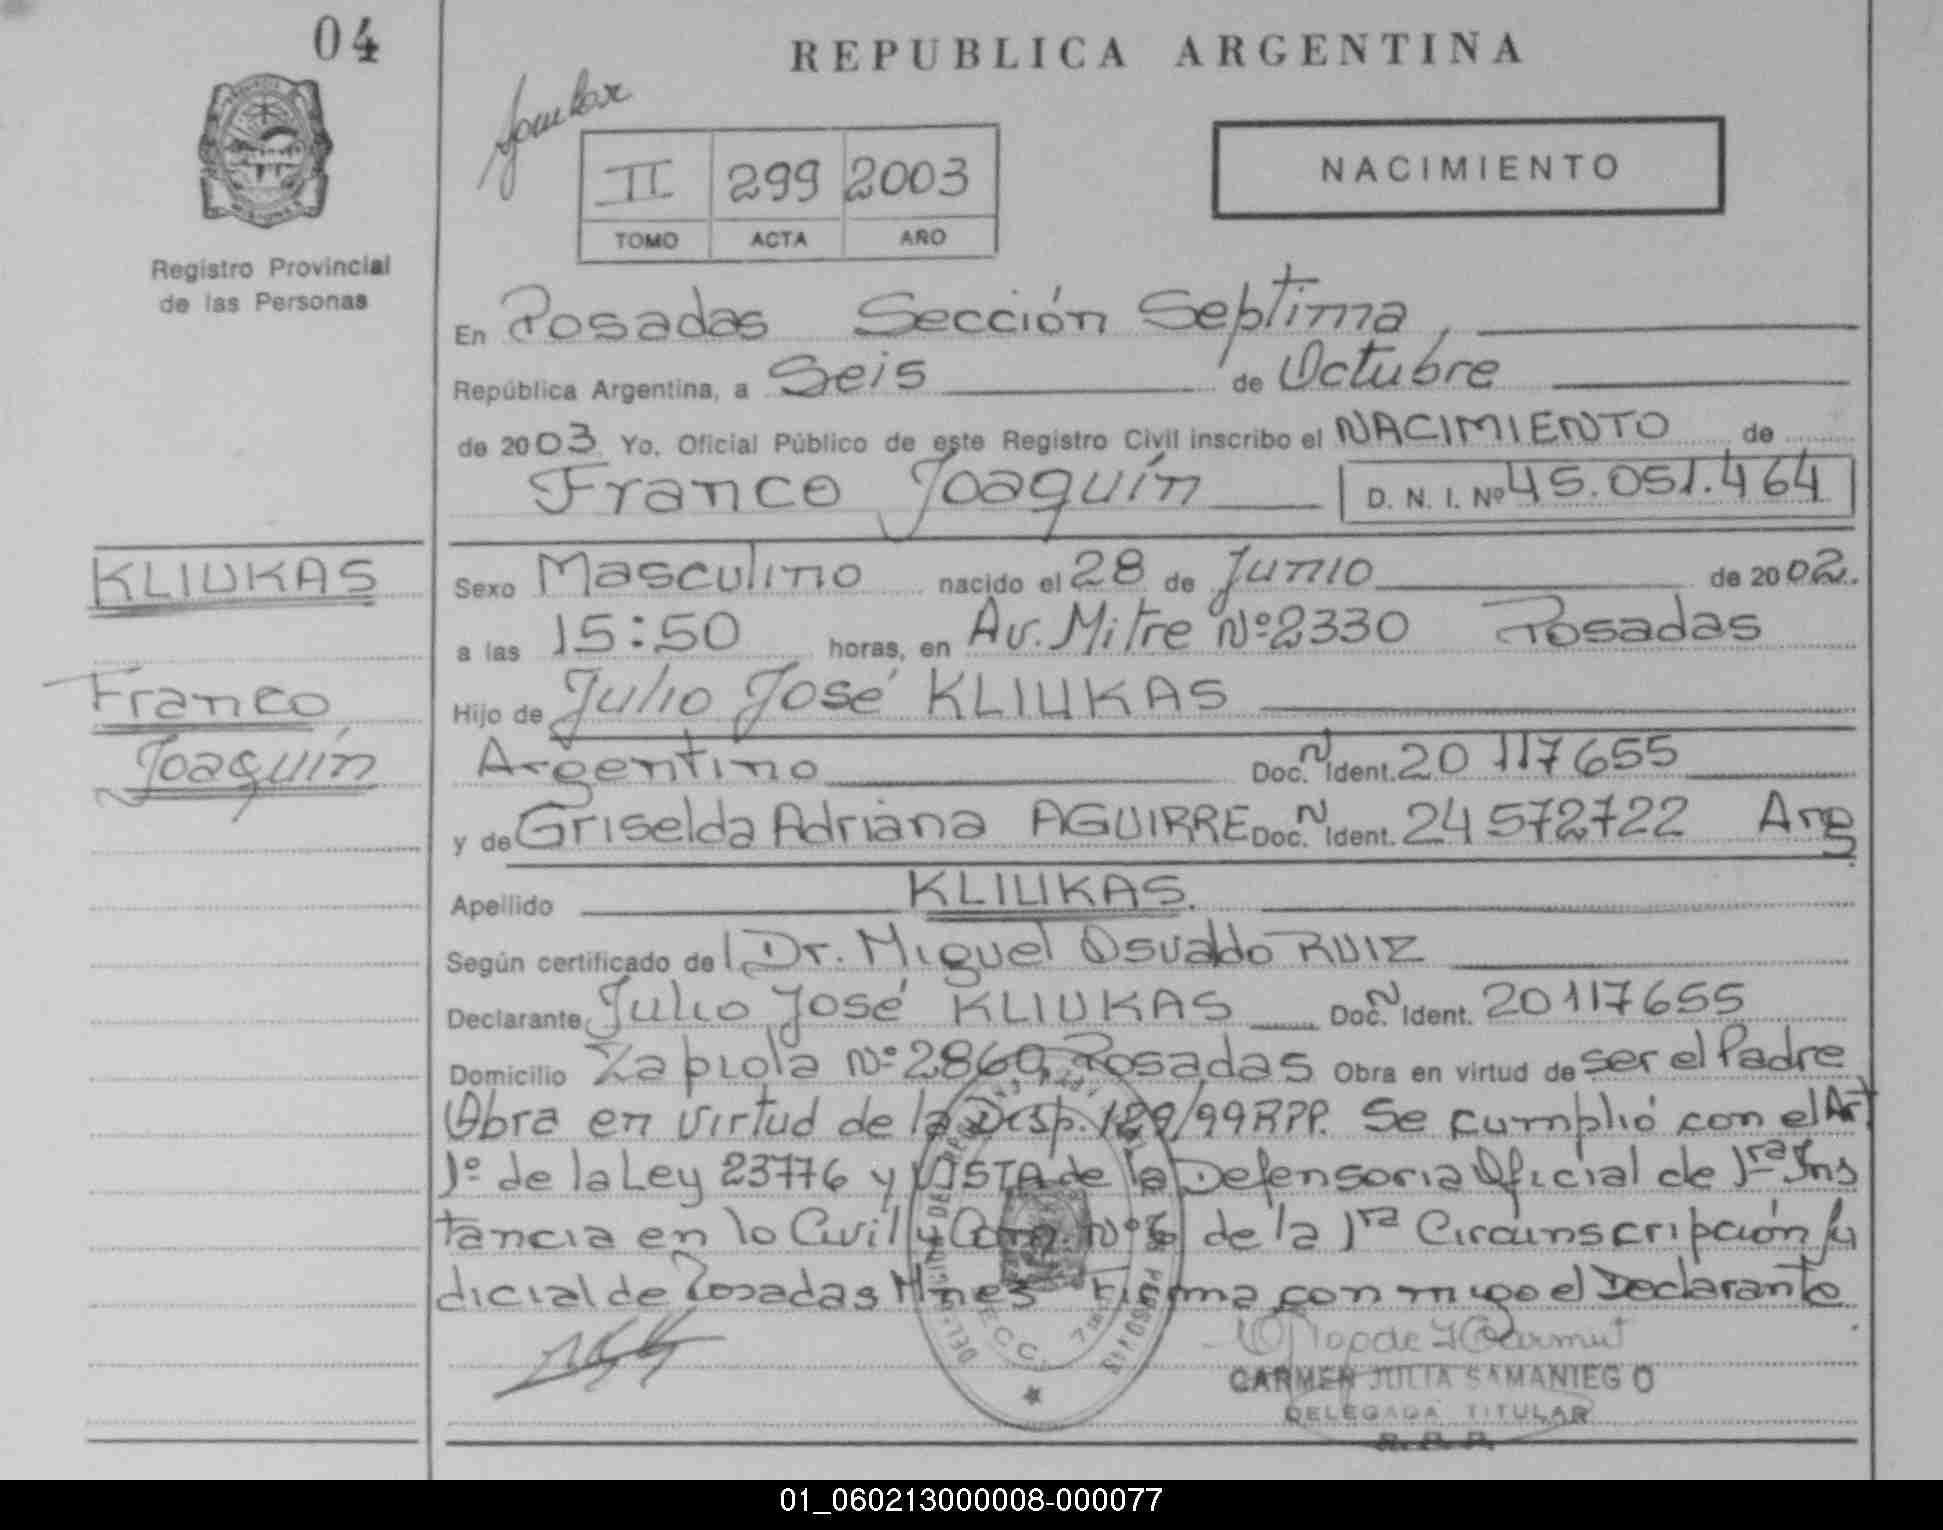 04
REPUBLICA ARGENTINA
NACIMIENTO
II 299 2003
TOMO ACTA AÑO
Registro Provincial
de las Personas
En Posadas Sección Septima,
República Argentina, a Seis de Octubre
de 2003 Yo, Oficial Público de este Registro Civil inscribo el NACIMIENTO de
Franco Joaquín D. N. I. Nº 45.051.464
KLIUKAS
Franco
Joaquín
Sexo Masculino nacido el 28 de Junio de 2002.
a las 15:50 horas, en Av. Mitre Nº 2330 Posadas
Hijo de Julio José KLIUKAS
Argentino Doc. N Ident. 20 117655
y de Griselda Adriana AGUIRRE Doc. N Ident. 24 572722 Arg.
Apellido KLIUKAS.
Según certificado del Dr. Miguel Osvaldo RUIZ
Declarante Julio José KLIUKAS Doc. N Ident. 20117655
Domicilio Zapiola Nº 2860, Posadas Obra en virtud de ser el Padre
Obra en virtud de la Disp. 129/99 RPP. Se cumplió con el Art
1º de la Ley 23776 y VISTA de la Defensoria Oficial de 1ra Ins
tancia en lo Civil y Com. Nº 6 de la 1ra Circunscripción Ju
dicial de Posadas Mnes Firma con migo el Declarante
CARMEN JULIA SAMANIEGO
DELEGADA TITULAR
R. P. P.
01_060213000008-000077